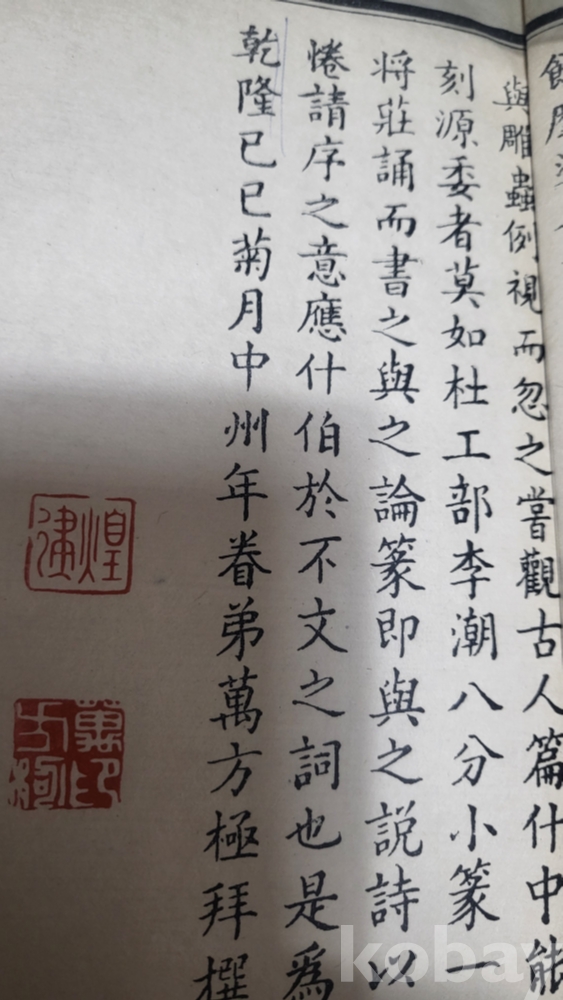 與雕蟲例視而忽之嘗觀古人篇什中能
刻源委者莫如杜工部李潮八分小篆一
將莊誦而書之與之論篆即與之説詩以
惓請序之意應什伯於不文之詞也是爲
乾隆己巳菊月中州年眷弟萬方極拜撰
煌
萬印方極
koba